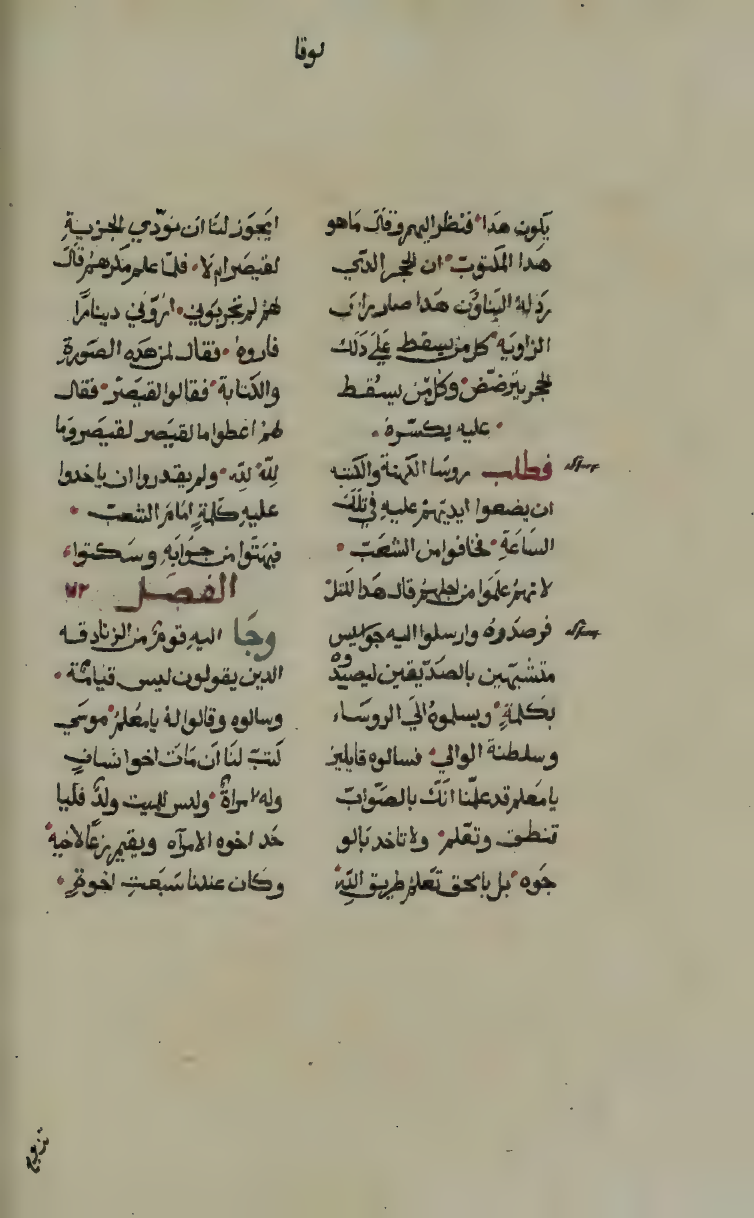 لوقا
يكون هدا فنظر اليهم وقال ماهو
هدا المكتوب ان الحجر الدي
ردله البناوون هدا صار براس
الزاويه كل من يسقط على دلك
الحجر يترضض وكل من يسقط
عليه يكسره
فطلب روسا الكهنة والكتبه
ان يضعوا ايديهم عليه في تلك
الساعة فخافوا من الشعب
لانهم علموا من اجلهم قال هدا المتل
فرصدوه وارسلوا اليه جواليس
متشبهين بالصديقين ليصيدوه
بكلمة ويسلموه الى الروساء
وسلطنة الوالي فسالوه قايلين
يا معلم قد علمنا انك بالصواب
تنطق وتعلم ولا تاخد بالو
جوه بل بالحق تعلم طريق الله
ايجوز لنا ان نودي الجزية
لقيصر ام لا فلما علم مكرهم قال
لهم لم تجربوني اروني دينارا
فاروه فقال لمن هده الصورة
والكتابة فقالوا لقيصر فقال
لهم اعطوا ما لقيصر لقيصر وما
لله لله ولم يقدروا ان ياخدوا
عليه كلمة امام الشعب
فبهتوا من جوابه وسكتوا
الفصل ٧٢
وجا اليه قوم من الزنادقه
الدين يقولون ليس قيامة
وسالوه وقالوا له يامعلم موسي
كتب لنا ان مات اخو انسان
وله امراة وليس للميت ولد فليا
خد اخوه الامراه ويقيم زرعا لاخيه
وكان عندنا سبعة اخوة
تزوج